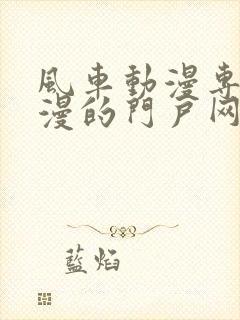 風車動漫專
漫的門戶网
藍焰